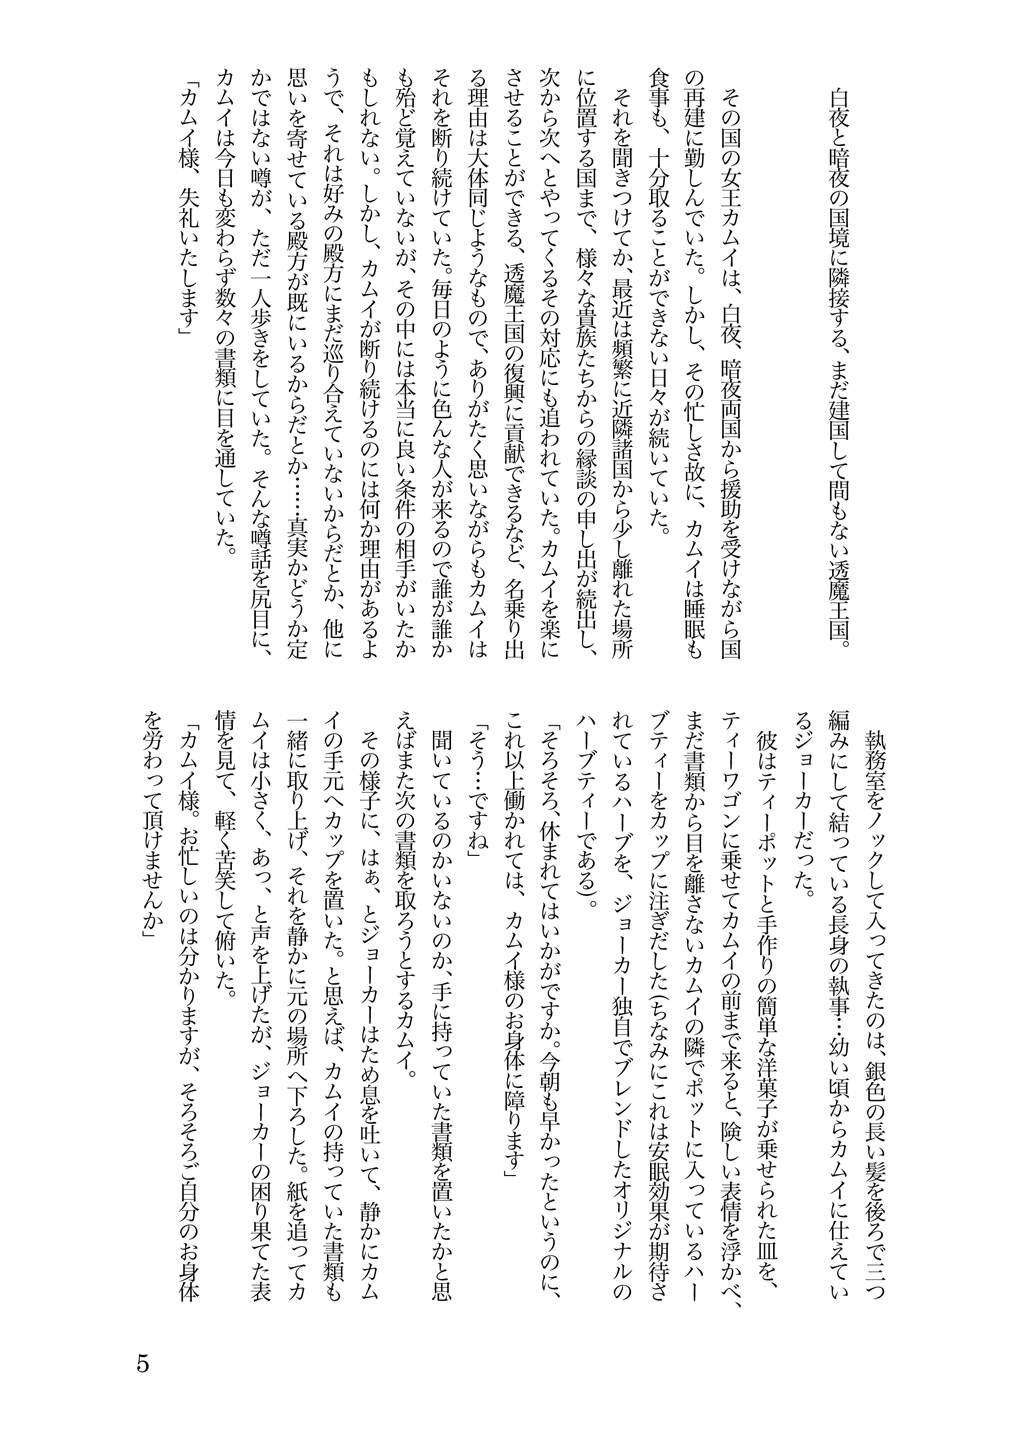 白夜と暗夜の国境に隣接する、まだ建国して間もない透魔王国。
その国の女王カムイは、白夜、暗夜両国から援助を受けながら国
の再建に勤しんでいた。しかし、その忙しさ故に、カムイは睡眠も
食事も、十分取ることができない日々が続いていた。
それを聞きつけてか、最近は頻繁に近隣諸国から少し離れた場所
に位置する国まで、様々な貴族たちからの縁談の申し出が続出し、
次から次へとやってくるその対応にも追われていた。カムイを楽に
させることができる、透魔王国の復興に貢献できるなど、名乗り出
る理由は大体同じようなもので、ありがたく思いながらもカムイは
それを断り続けていた。毎日のように色んな人が来るので誰が誰か
も殆ど覚えていないが、その中には本当に良い条件の相手がいたか
もしれない。しかし、カムイが断り続けるのには何か理由があるよ
うで、それは好みの殿方にまだ巡り合えていないからだとか、他に
思いを寄せている殿方が既にいるからだとか……真実かどうか定
かではない噂が、ただ一人歩きをしていた。そんな噂話を尻目に、
カムイは今日も変わらず数々の書類に目を通していた。
「カムイ様、失礼いたします」
執務室をノックして入ってきたのは、銀色の長い髪を後ろで三つ
編みにして結っている長身の執事…幼い頃からカムイに仕えてい
るジョーカーだった。
彼はティーポットと手作りの簡単な洋菓子が乗せられた皿を、
ティーワゴンに乗せてカムイの前まで来ると、険しい表情を浮かべ、
まだ書類から目を離さないカムイの隣でポットに入っているハー
ブティーをカップに注ぎだした(ちなみにこれは安眠効果が期待さ
れているハーブを、ジョーカー独自でブレンドしたオリジナルの
ハーブティーである)。
「そろそろ、休まれてはいかがですか。今朝も早かったというのに、
これ以上働かれては、カムイ様のお身体に障ります」
「そう…ですね」
聞いているのかいないのか、手に持っていた書類を置いたかと思
えばまた次の書類を取ろうとするカムイ。
その様子に、はぁ、とジョーカーはため息を吐いて、静かにカム
イの手元へカップを置いた。と思えば、カムイの持っていた書類も
一緒に取り上げ、それを静かに元の場所へ下ろした。紙を追ってカ
ムイは小さく、あっ、と声を上げたが、ジョーカーの困り果てた表
情を見て、軽く苦笑して俯いた。
「カムイ様。お忙しいのは分かりますが、そろそろご自分のお身体
を労わって頂けませんか」
5